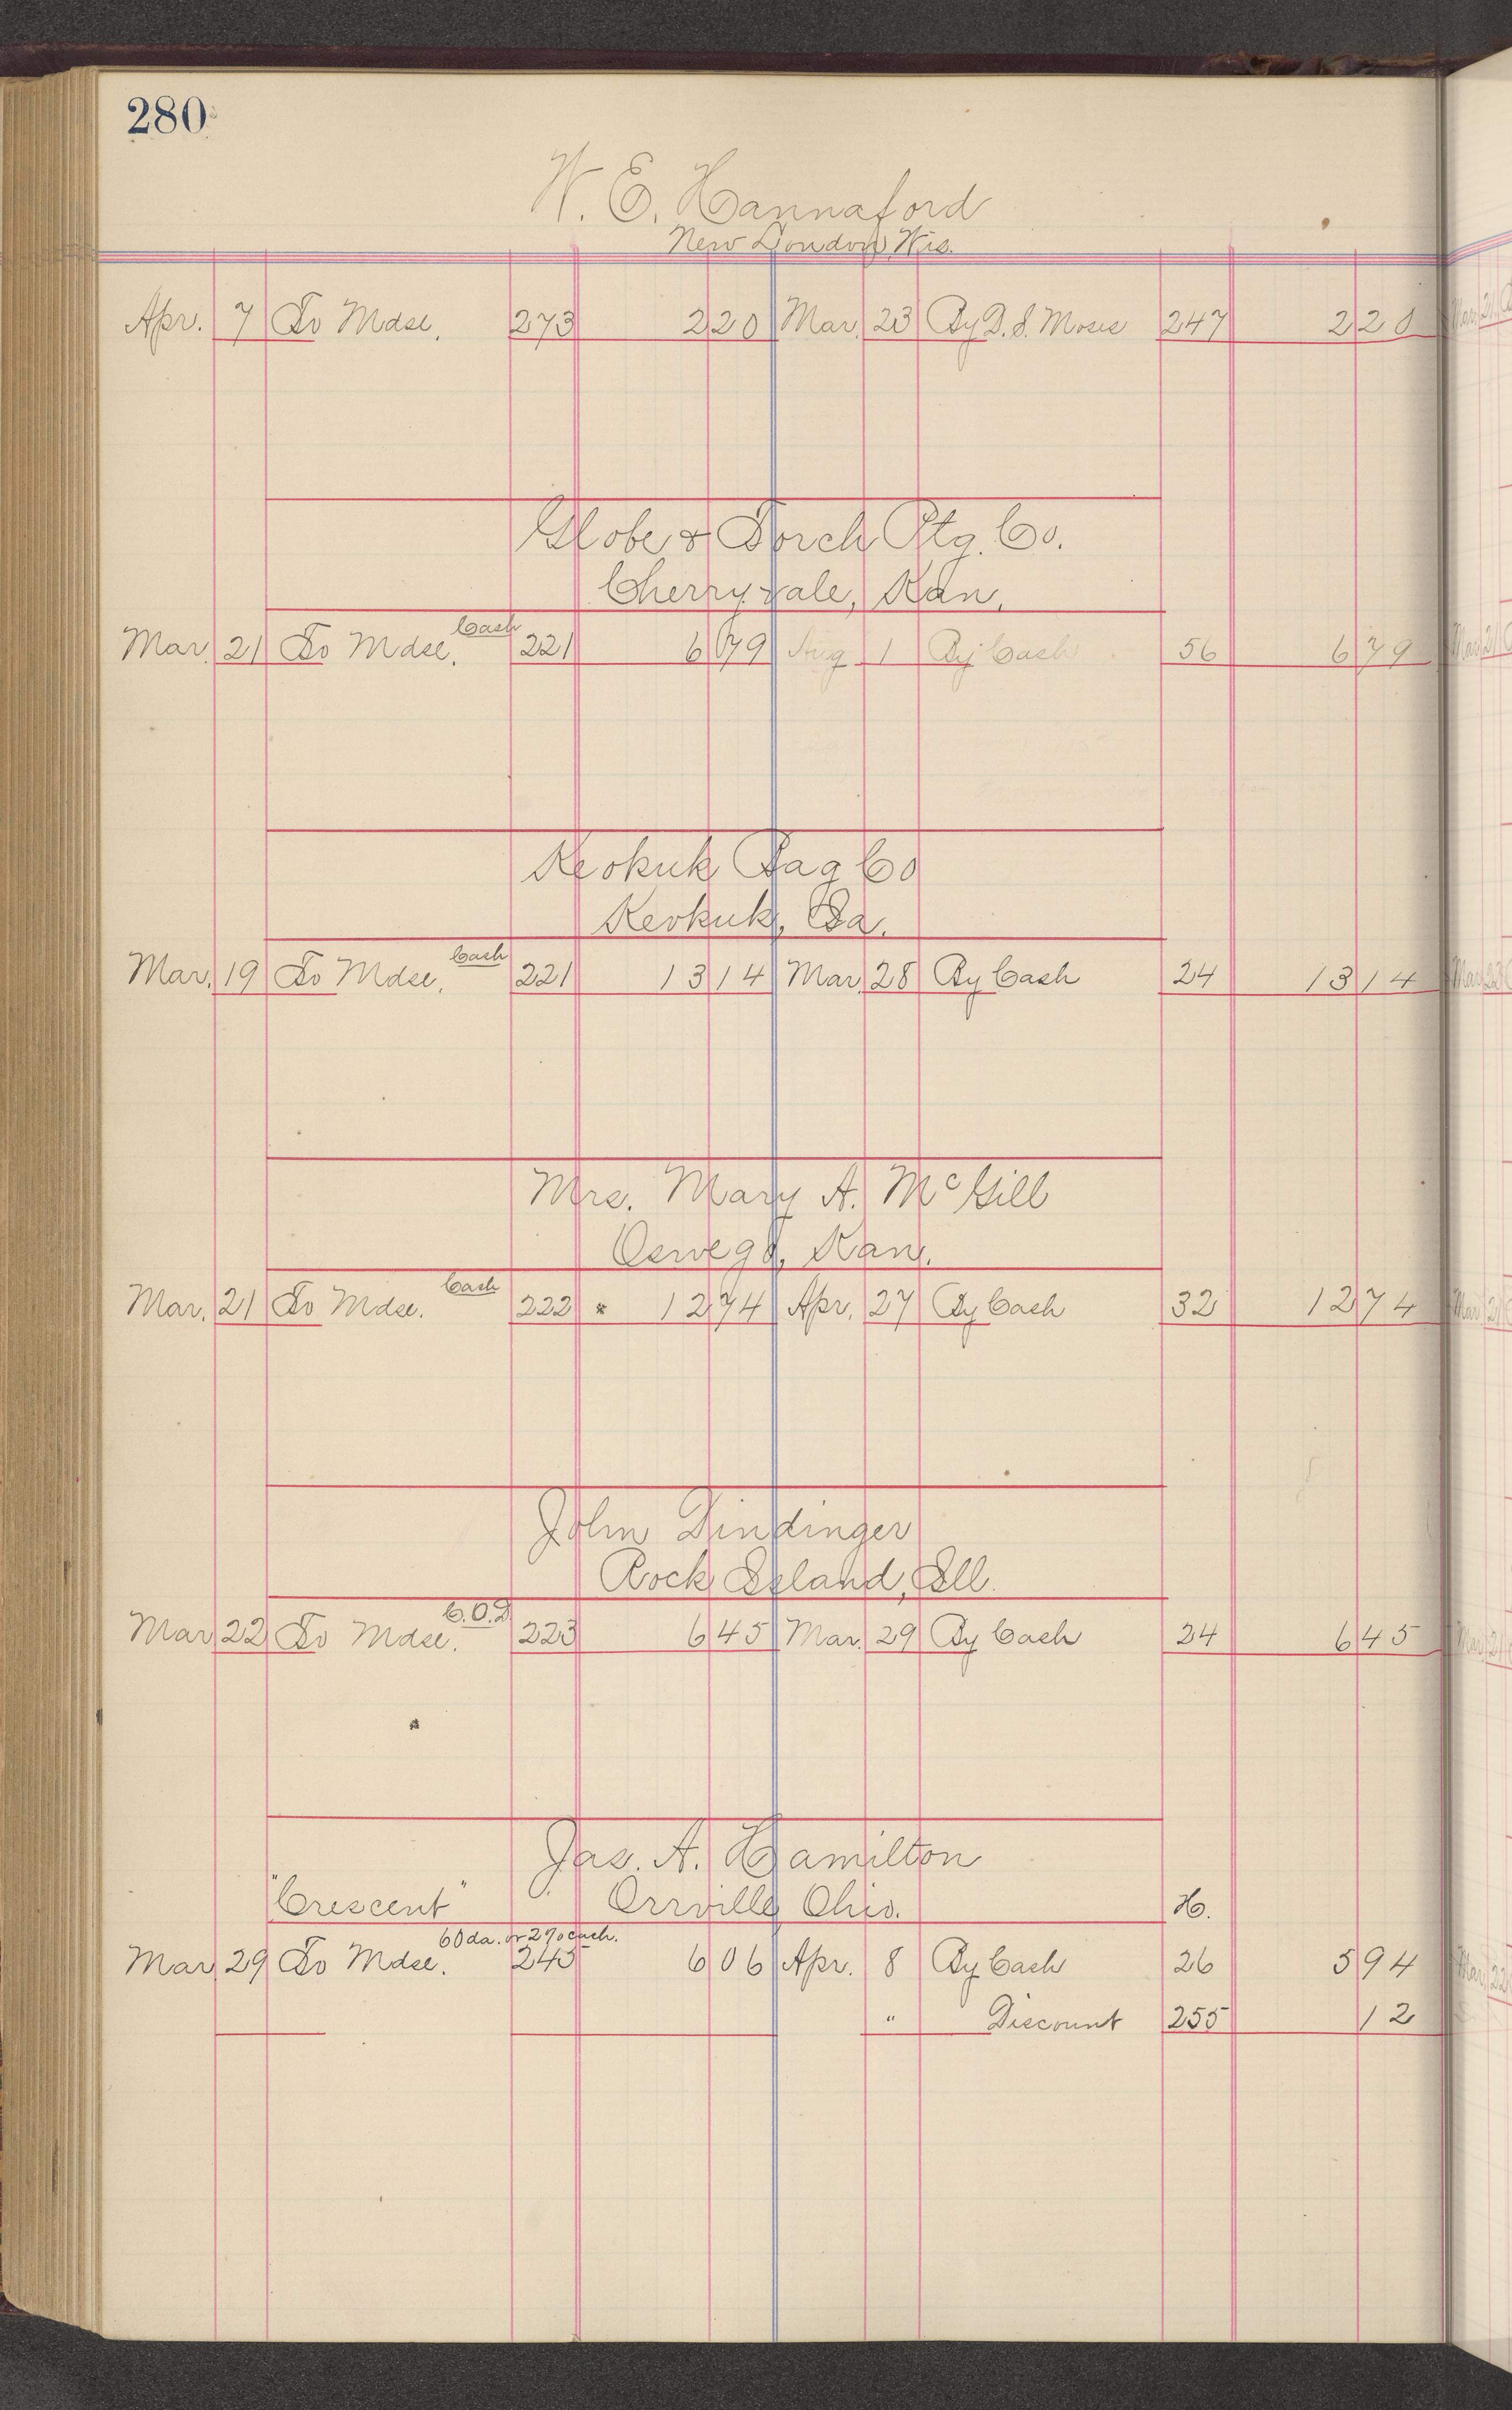 280
W. E. Hannaford
New London, Wis.
Apr. 7 To Mdse. 273 2 20 Mar. 23 By D. S. Moses 247 2 20
Globe & Torch Ptg. Co.
Cherryvale, Kan.
Mar. 21 To Mdse. Cash 221 6 79 Aug 1 By Cash 56 6 79
Keokuk Bag Co
Keokuk, Ia.
Mar. 19 To Mdse. Cash 221 13 14 Mar. 28 By Cash 24 13 14
Mrs. Mary A. McGill
Oswego, Kan.
Mar. 21 To Mdse. Cash 222 * 12 74 Apr. 27 By Cash 32 12 74
John Dindinger
Rock Island, Ill.
Mar 22 To Mdse. C.O.D. 223 6 45 Mar. 29 By Cash 24 6 45
Jas. A. Hamilton
"Crescent" Orrville, Ohio. H.
60 da. or 2% cash.
Mar 29 To Mdse. 245 6 06 Apr. 8 By Cash 26 5 94
" Discount 255 12